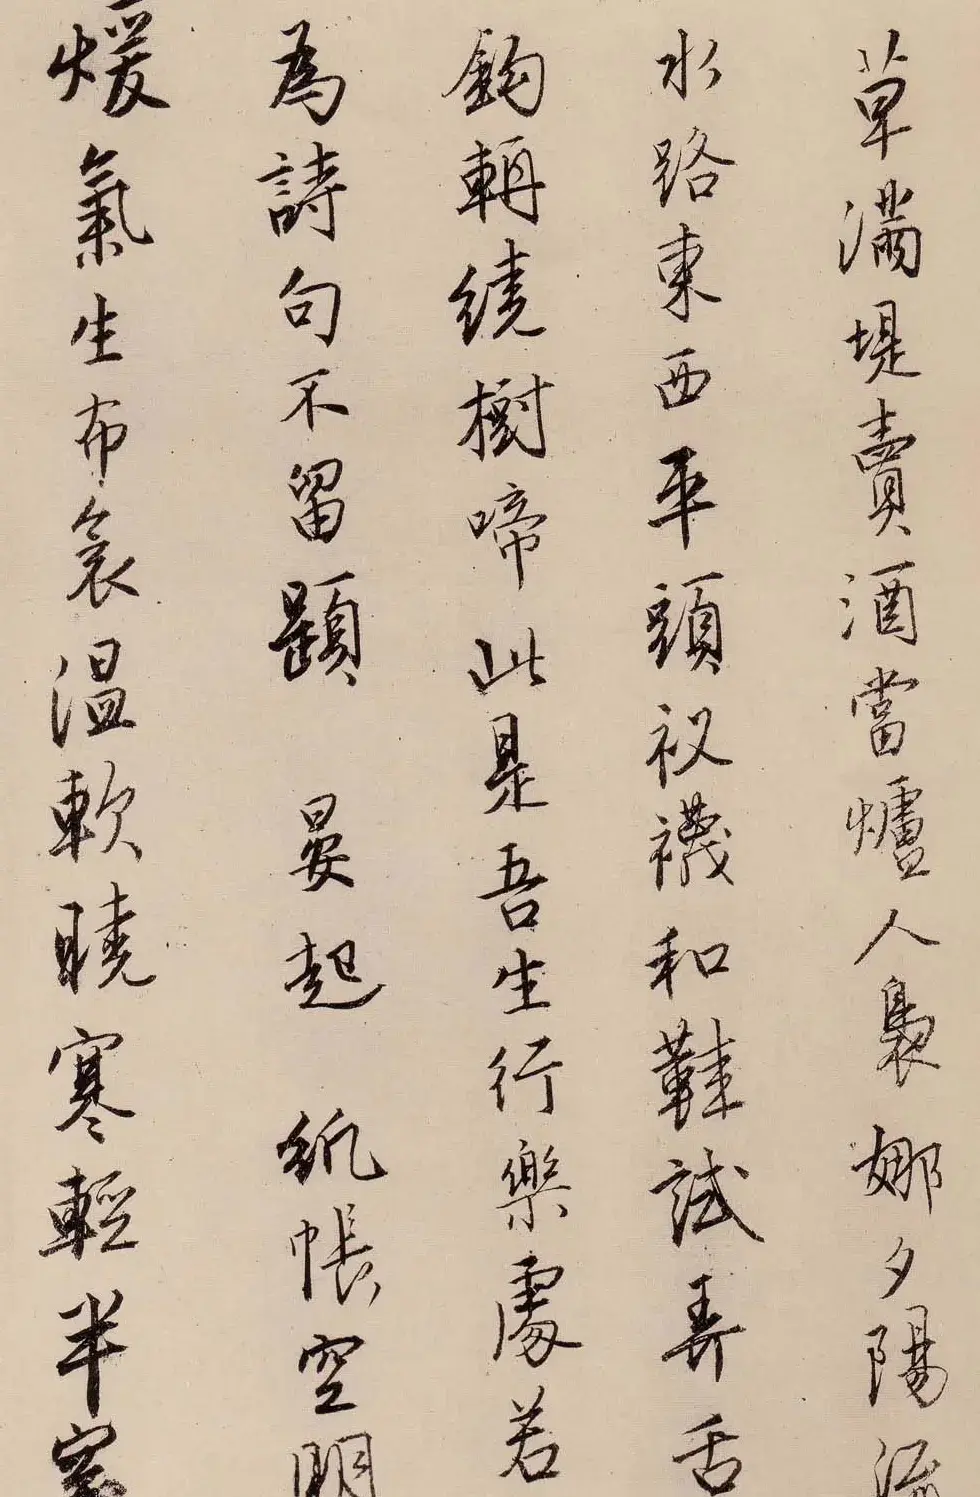 草滿堤賣酒當爐人裊娜夕陽流
水路東西平頭衩襪和鞋試弄舌
鈎輈繞樹啼此是吾生行樂處若
為詩句不留題 晏起 紙帳空明
煖氣生布衾溫軟曉寒輕半窗